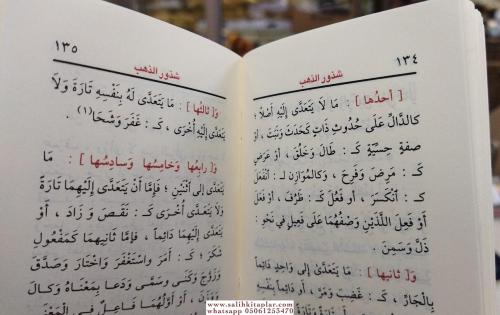 ١٣٤
شذور الذهب
[ أَحَدُهَا ] : مَا لَا يَتَعَدَّى إِلَيْهِ أَصْلًا ؛
كَالدَّالِّ عَلَى حُدُوثِ ذَاتٍ كَحَدَثَ وَنَبَتَ ، أَوْ
صِفَةٍ حِسِّيَّةٍ كَـ : طَالَ وَخَلُقَ ، أَوْ عَرَضٍ
كَـ : مَرِضَ وَفَرِحَ ، وَكَالْمُوَازِنِ لـ : انْفَعَلَ
كَـ : انْكَسَرَ ، أَوْ فَعُلَ كَـ : ظَرُفَ ، أَوْ
أَوْ فَعِلَ اللَّذَيْنِ وَصْفُهُمَا عَلَى فَعِيلٍ فِي نَحْوِ :
ذَلَّ وَسَمِنَ .
[ ثَانِيهَا ] : مَا يَتَعَدَّى إِلَى وَاحِدٍ دَائِماً
بِالْجَارِّ ، كَـ : غَضِبَ وَمَرَّ ، أَوْ دَائِماً
١٣٥
شذور الذهب
وَ[ ثَالِثُهَا ] : مَا يَتَعَدَّى لَهُ بِنَفْسِهِ تَارَةً وَلَا
يَتَعَدَّى إِلَيْهِ أُخْرَى ، كَـ : فَغَرَ وَشَحَا(١) .
وَ[ رَابِعُهَا وَخَامِسُهَا وَسَادِسُهَا ] : مَا
يَتَعَدَّى إِلَى اثْنَيْنِ ؛ فَإِمَّا أَنْ يَتَعَدَّى إِلَيْهِمَا تَارَةً
وَلَا يَتَعَدَّى أُخْرَى كَـ : نَقَصَ وَ زَادَ ، أَوْ
يَتَعَدَّى إِلَيْهِمَا دَائِماً ، فَإِمَّا ثَانِيهِمَا كَمَفْعُولِ
شَكَرَ كَـ : أَمَرَ وَاسْتَغْفَرَ وَاخْتَارَ وَصَدَّقَ
وَزَوَّجَ وَكَنَى وَسَمَّى وَدَعَا بِمَعْنَاهُ وَكَالَ
أَوْ أَوَّلُهُمَا فَاعِلٌ فِي الْمَعْنَى
www.salihkitaplar.com
whatsapp 05061253470